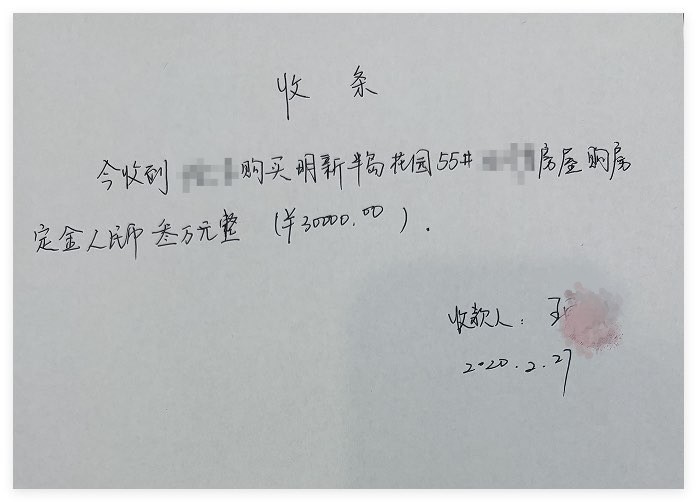 收条
今收到 购买明新半岛花园55# 房屋购房
定金人民币叁万元整 (¥30000.00).
收款人: 王
2020.2.27